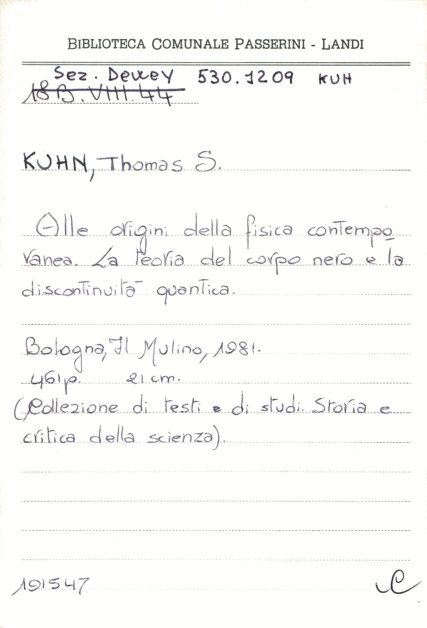 BIBLIOTECA COMUNALE PASSERINI - LANDI
Sez. Dewey 530.1209 KUH
18B.VIII.44
KUHN, Thomas S.
Alle origini della fisica contempo
ranea. La teoria del corpo nero e la
discontinuità quantica.
Bologna, Il Mulino, 1981.
461p. 21 cm.
(Collezione di testi e di studi. Storia e
critica della scienza).
191547
C